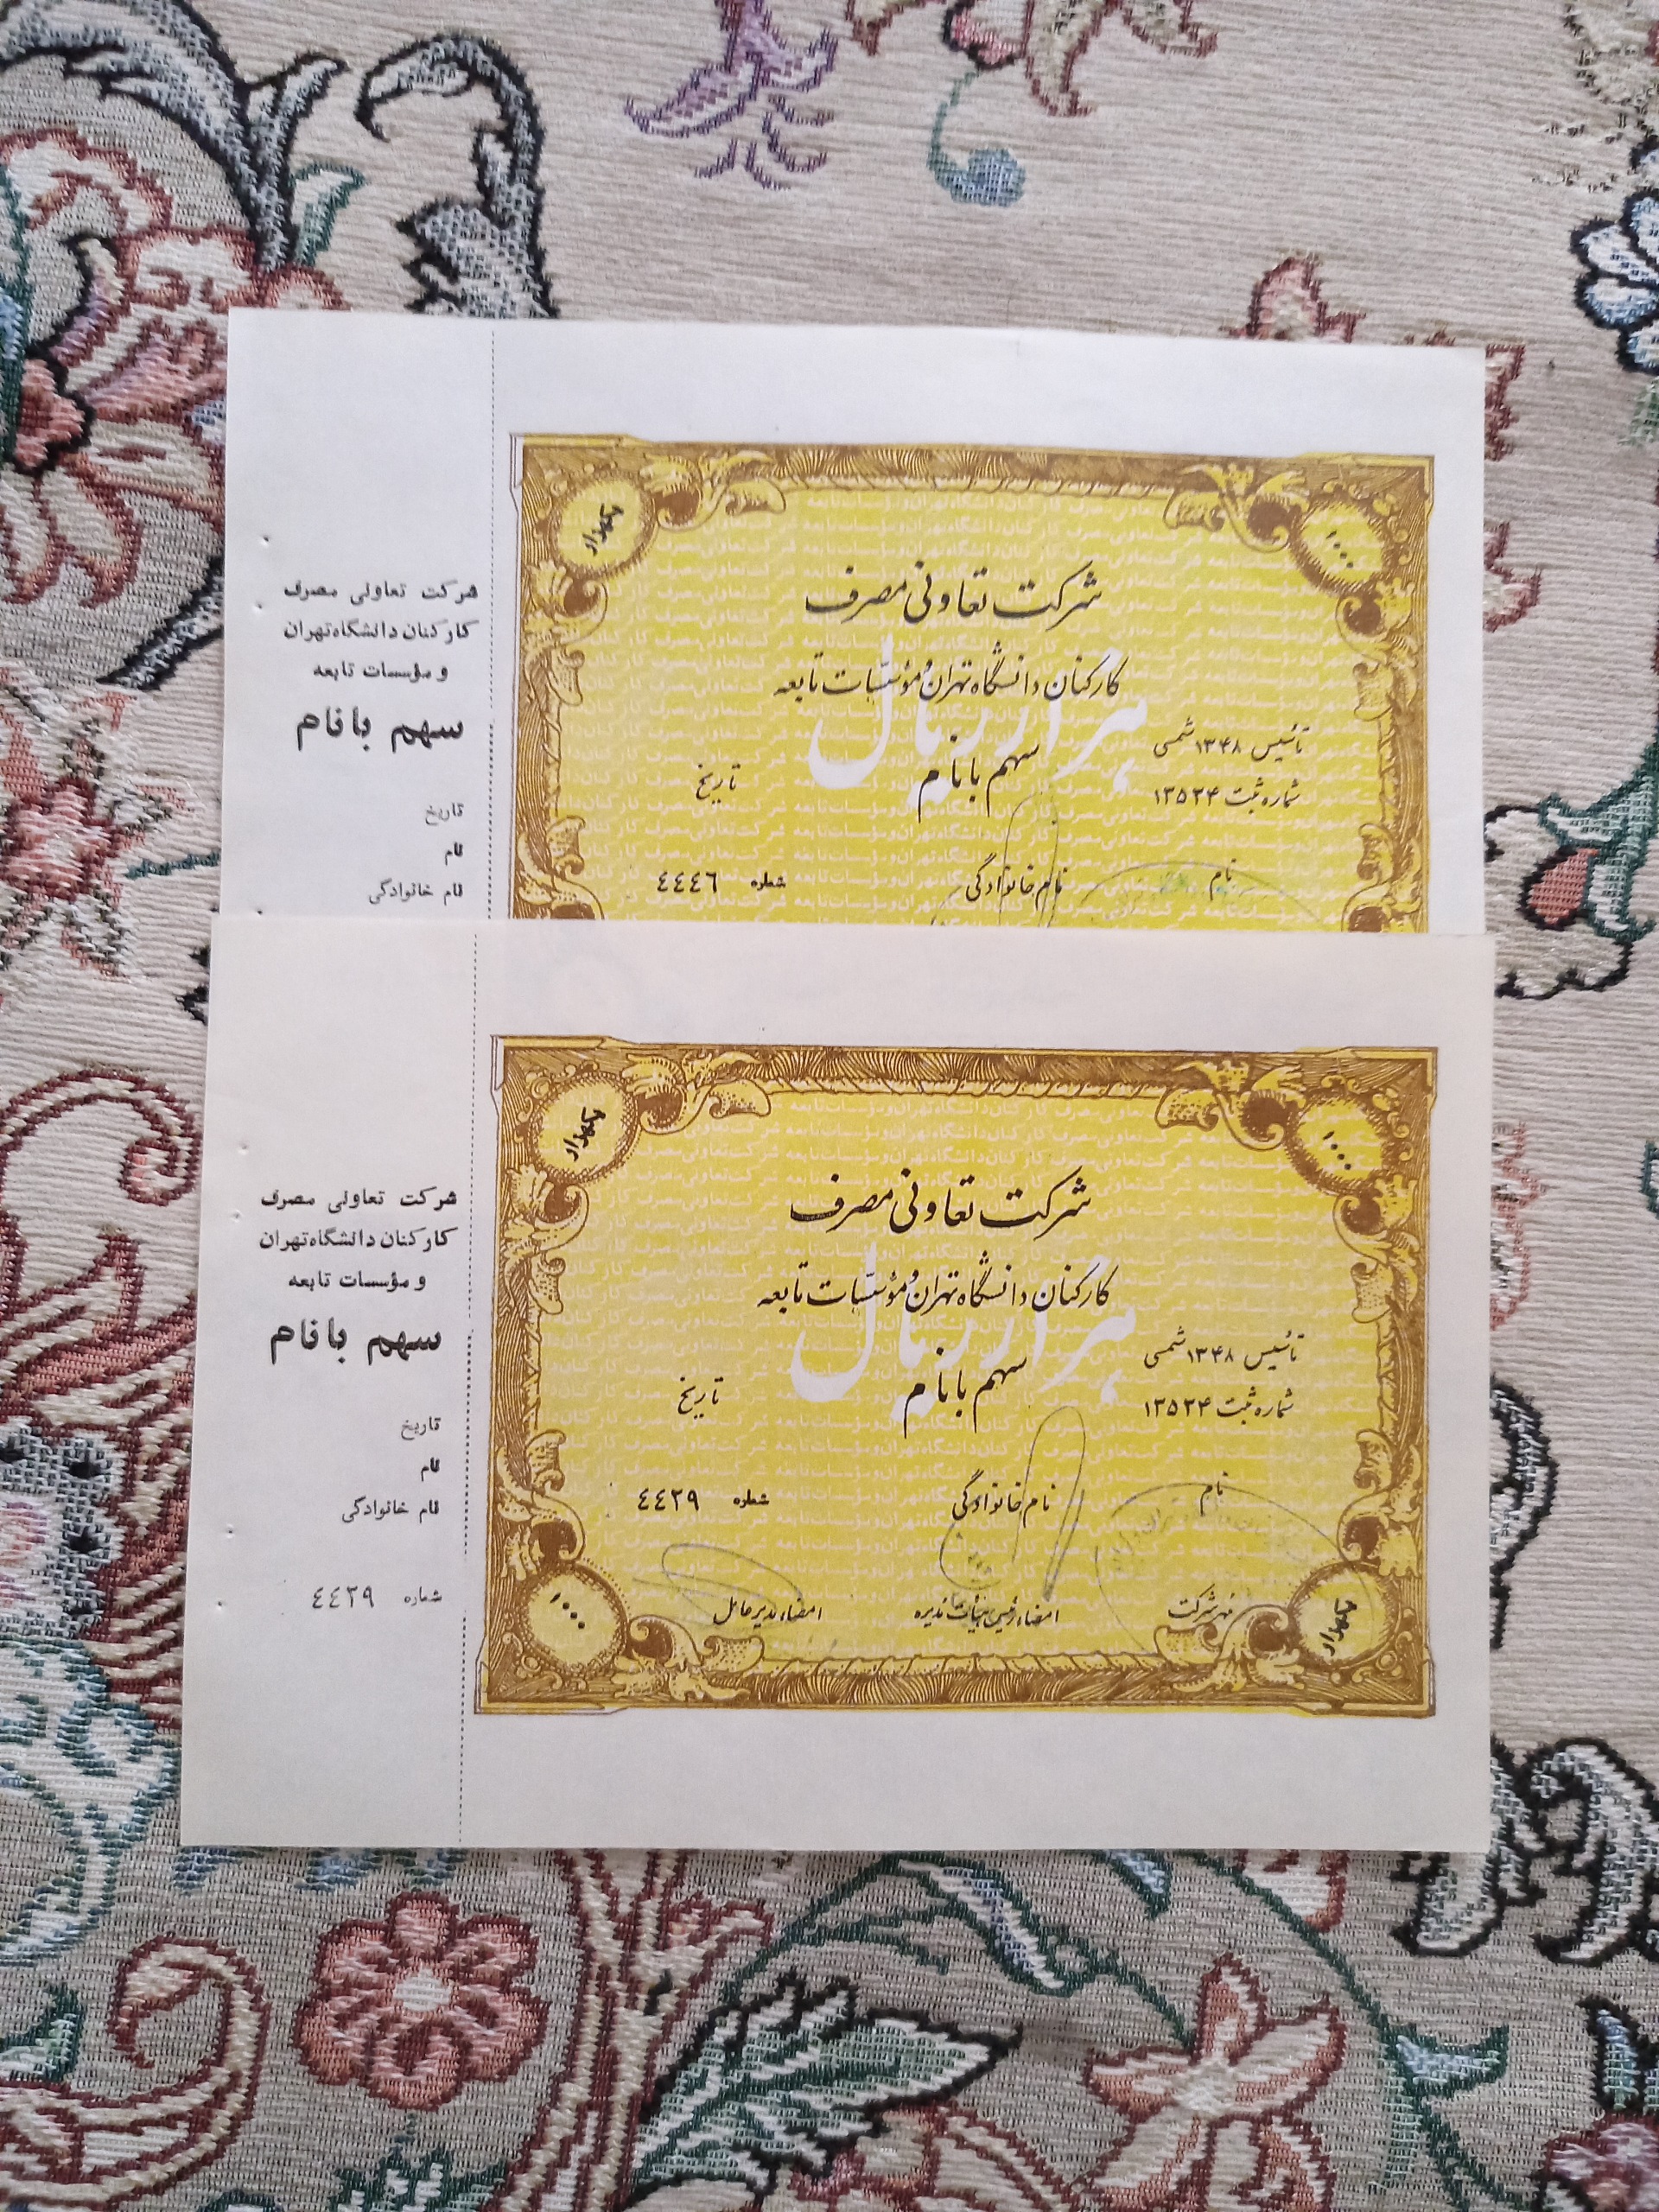 شرکت تعاونی مصرف
کارکنان دانشگاه تهران
و مؤسسات تابعه
سهم بانام
تاریخ
نام
نام خانوادگی
یکهزار
۱۰۰۰
شرکت تعاونی مصرف
کارکنان دانشگاه تهران و مؤسسات تابعه
هزار ریال
تأسیس ۱۳۴۸ شمسی
سهم بانام
تاریخ
شماره ثبت ۱۳۵۲۴
نام
نام خانوادگی
شماره ٤٤٤٦
شرکت تعاونی مصرف
کارکنان دانشگاه تهران
و مؤسسات تابعه
سهم بانام
تاریخ
نام
نام خانوادگی
شماره ٤٤٣٩
یکهزار
۱۰۰۰
شرکت تعاونی مصرف
کارکنان دانشگاه تهران و مؤسسات تابعه
هزار ریال
تأسیس ۱۳۴۸ شمسی
سهم بانام
تاریخ
شماره ثبت ۱۳۵۲۴
نام
نام خانوادگی
شماره ٤٤٣٩
مهر شرکت
امضاء رئیس هیأت مدیره
امضاء مدیر عامل
یکهزار
۱۰۰۰